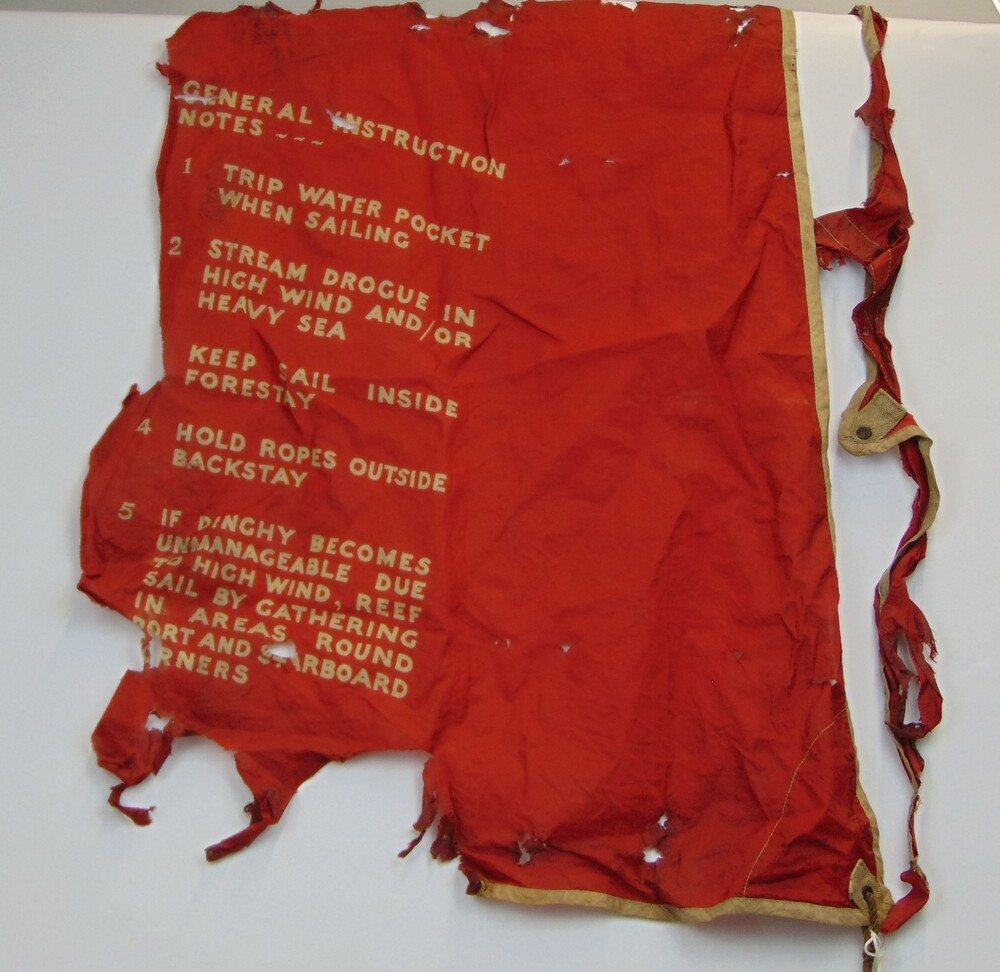 GENERAL INSTRUCTION
NOTES ~~~
1 TRIP WATER POCKET
WHEN SAILING
2 STREAM DROGUE IN
HIGH WIND AND/OR
HEAVY SEA
KEEP SAIL INSIDE
FORESTAY
4 HOLD ROPES OUTSIDE
BACKSTAY
5 IF DINGHY BECOMES
UNMANAGEABLE DUE
TO HIGH WIND, REEF
SAIL BY GATHERING
IN AREAS ROUND
PORT AND STARBOARD
RNERS